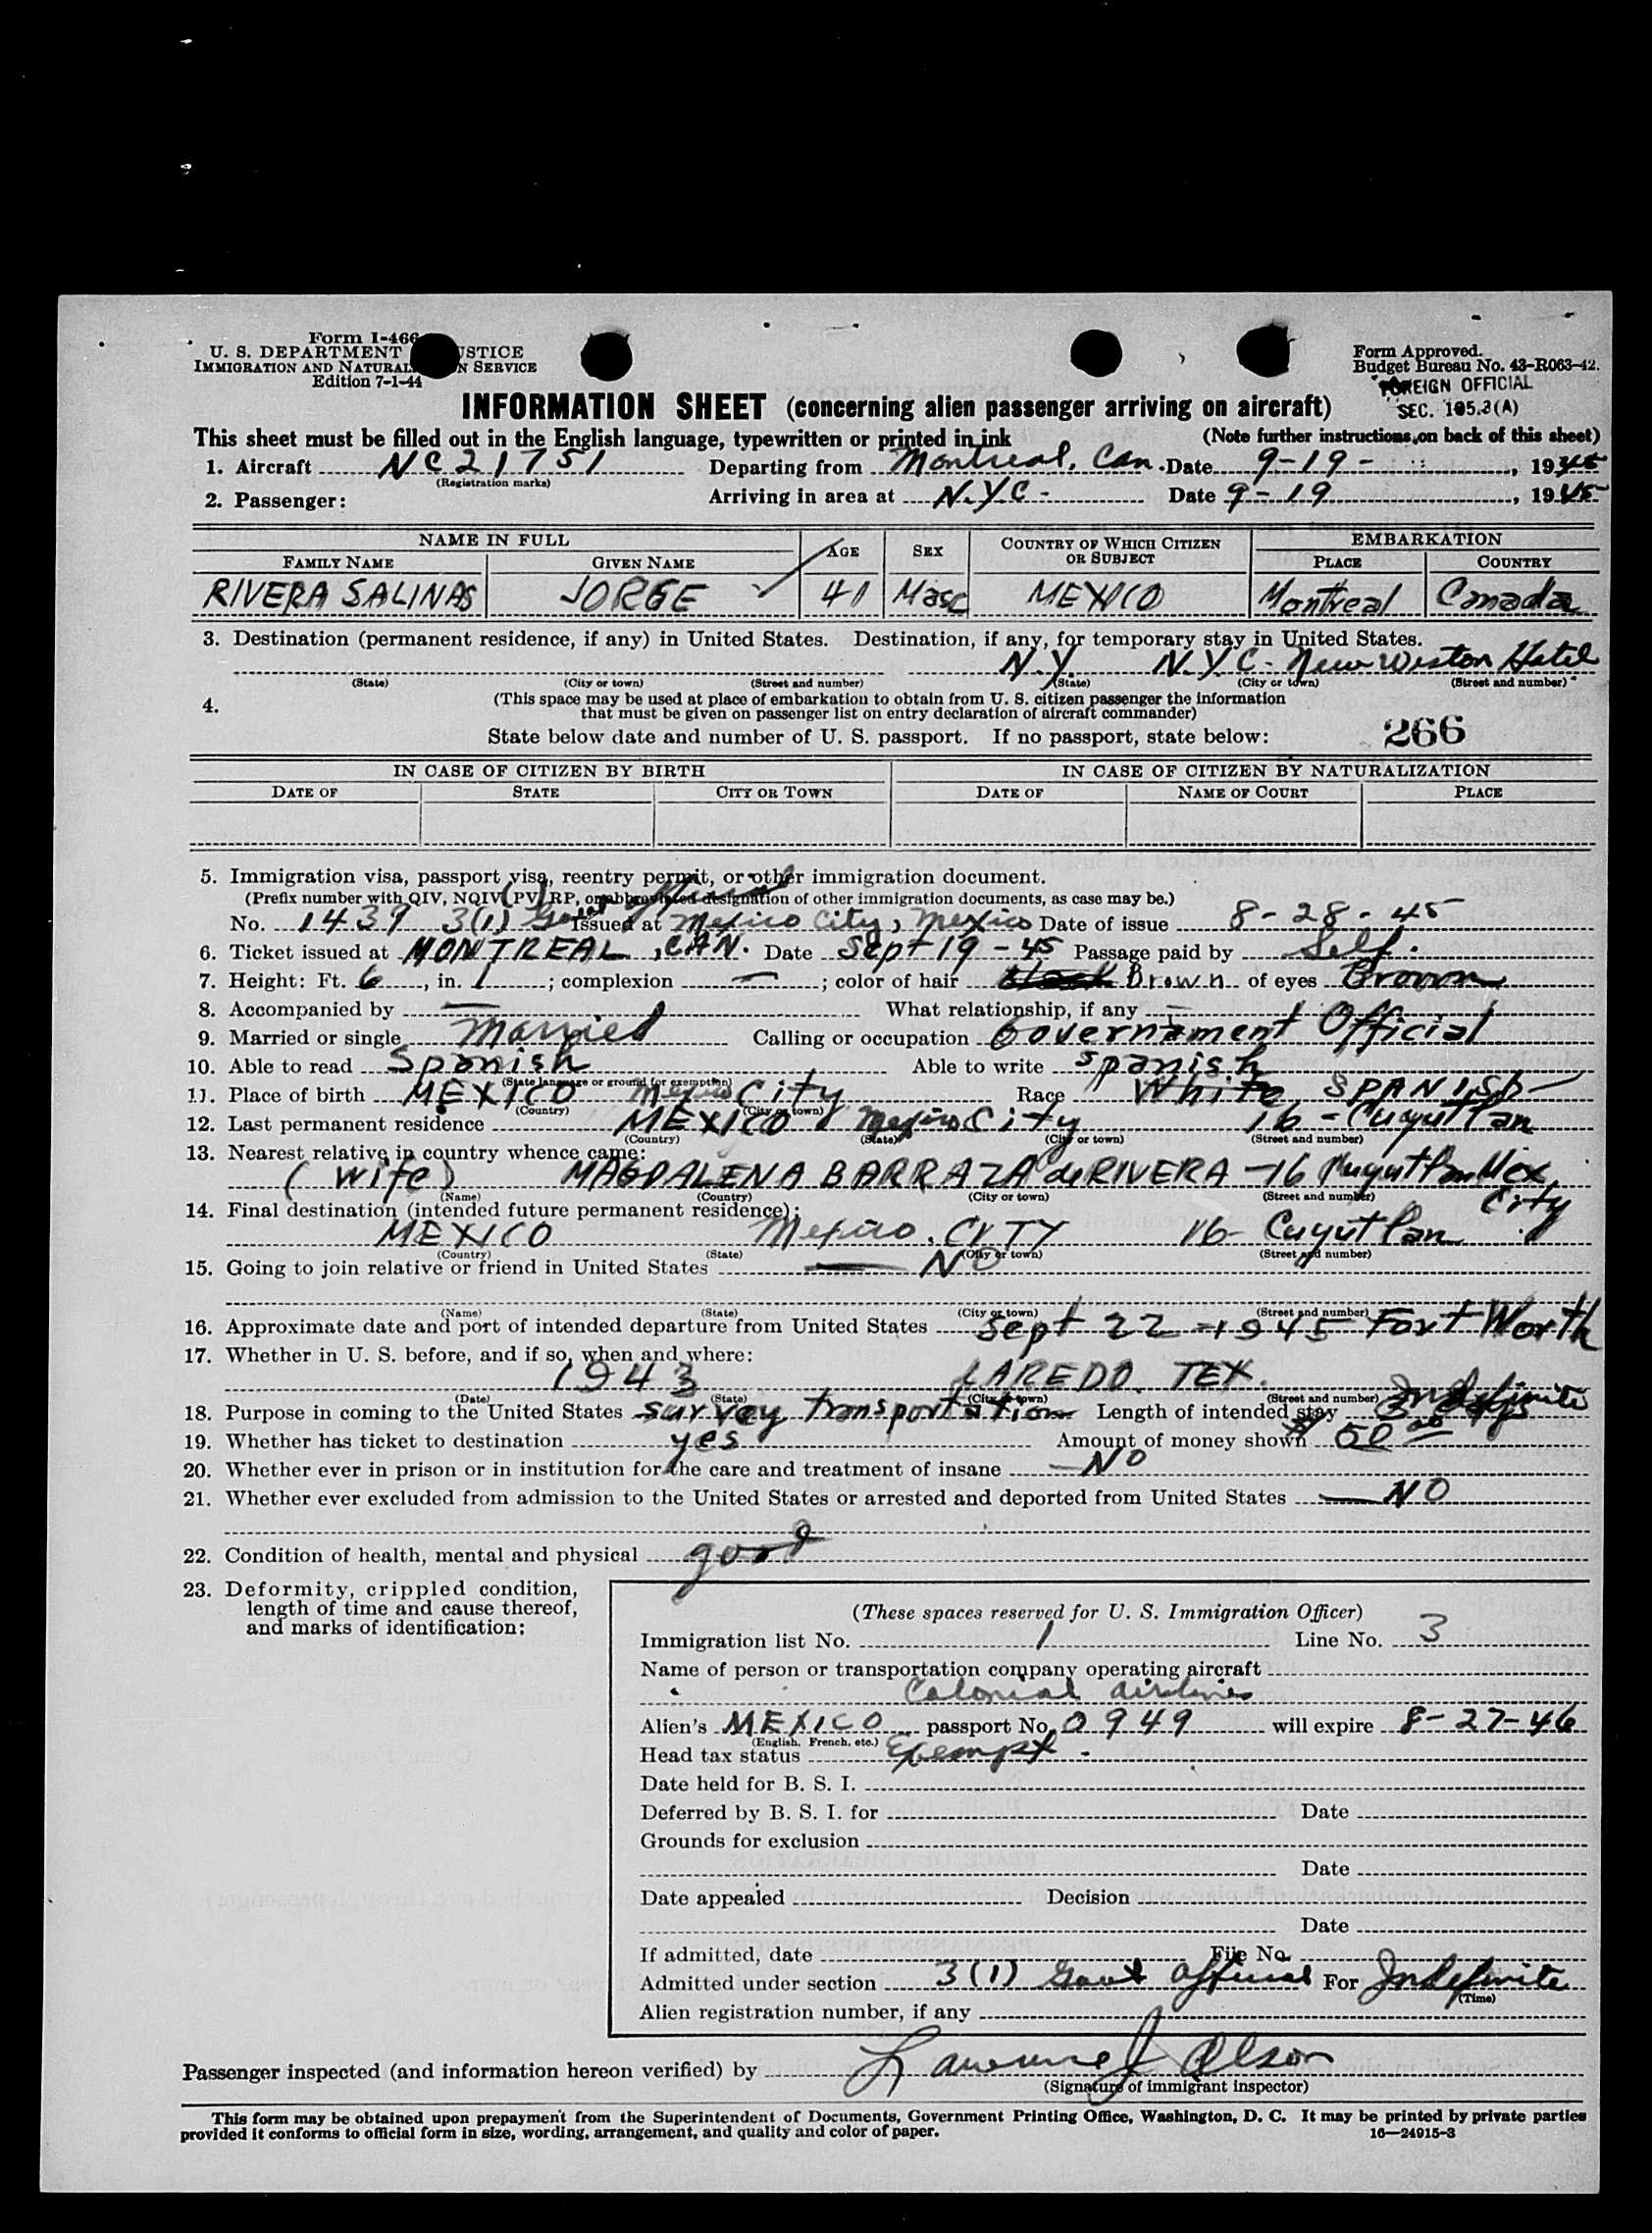 Form I-466
U. S. DEPARTMENT JUSTICE
IMMIGRATION AND NATURAL N SERVICE
Edition 7-1-44
Form Approved.
Budget Bureau No. 43-R063-42.
FOREIGN OFFICIAL
SEC. 105.3(A)
INFORMATION SHEET (concerning alien passenger arriving on aircraft)
This sheet must be filled out in the English language, typewritten or printed in ink (Note further instructions on back of this sheet)
1. Aircraft NC21751 Departing from Montreal, Can. Date 9-19-, 1945
(Registration marks)
2. Passenger: Arriving in area at N.Y.C- Date 9-19, 1945
NAME IN FULL AGE SEX COUNTRY OF WHICH CITIZEN OR SUBJECT EMBARKATION
FAMILY NAME GIVEN NAME PLACE COUNTRY
RIVERA SALINAS JORGE ✓ 41 Masc MEXICO Montreal Canada
3. Destination (permanent residence, if any) in United States. Destination, if any, for temporary stay in United States.
N.Y. N.Y.C- New Weston Hotel
(State) (City or town) (Street and number) (State) (City or town) (Street and number)
4. (This space may be used at place of embarkation to obtain from U. S. citizen passenger the information
that must be given on passenger list on entry declaration of aircraft commander)
State below date and number of U. S. passport. If no passport, state below: 266
IN CASE OF CITIZEN BY BIRTH IN CASE OF CITIZEN BY NATURALIZATION
DATE OF STATE CITY OR TOWN DATE OF NAME OF COURT PLACE
5. Immigration visa, passport visa, reentry permit, or other immigration document.
(Prefix number with QIV, NQIV, PV, RP, or abbreviated designation of other immigration documents, as case may be.)
No. 1439 3(1) Govt official Issued at Mexico City, Mexico Date of issue 8-28-45
6. Ticket issued at MONTREAL, CAN. Date Sept 19-45 Passage paid by Self.
7. Height: Ft. 6, in. 1; complexion —; color of hair Brown of eyes Brown
8. Accompanied by — What relationship, if any —
9. Married or single Married Calling or occupation Government Official
10. Able to read Spanish Able to write Spanish
(State language or ground for exemption)
11. Place of birth MEXICO Mexico City Race White SPANISH
(Country) (City or town)
12. Last permanent residence MEXICO Mexico City 16-Cuyutlan
(Country) (State) (City or town) (Street and number)
13. Nearest relative in country whence came:
(Wife) MAGDALENA BARRAZA de RIVERA -16 Cuyutlan Mex City
(Name) (Country) (City or town) (Street and number)
14. Final destination (intended future permanent residence):
MEXICO Mexico, CITY 16- Cuyutlan
(Country) (State) (City or town) (Street and number)
15. Going to join relative or friend in United States — NO
(Name) (State) (City or town) (Street and number)
16. Approximate date and port of intended departure from United States Sept 22-1945 Fort Worth
17. Whether in U. S. before, and if so, when and where:
1943 LAREDO TEX.
(Date) (State) (City or town) (Street and number)
18. Purpose in coming to the United States survey transportation Length of intended stay 3 days Indefinite
19. Whether has ticket to destination yes Amount of money shown $50 00
20. Whether ever in prison or in institution for the care and treatment of insane —NO
21. Whether ever excluded from admission to the United States or arrested and deported from United States —NO
22. Condition of health, mental and physical good
23. Deformity, crippled condition,
length of time and cause thereof,
and marks of identification:
(These spaces reserved for U. S. Immigration Officer)
Immigration list No. 1 Line No. 3
Name of person or transportation company operating aircraft
Colonial Airlines
Alien's MEXICO passport No. 0949 will expire 8-27-46
(English, French, etc.)
Head tax status Exempt -
Date held for B. S. I.
Deferred by B. S. I. for Date
Grounds for exclusion
Date
Date appealed Decision
Date
If admitted, date File No.
Admitted under section 3(1) Govt official For Indefinite
(Time)
Alien registration number, if any
Passenger inspected (and information hereon verified) by Lawrence J Olson
(Signature of immigrant inspector)
This form may be obtained upon prepayment from the Superintendent of Documents, Government Printing Office, Washington, D. C. It may be printed by private parties
provided it conforms to official form in size, wording, arrangement, and quality and color of paper. 16—24915-3